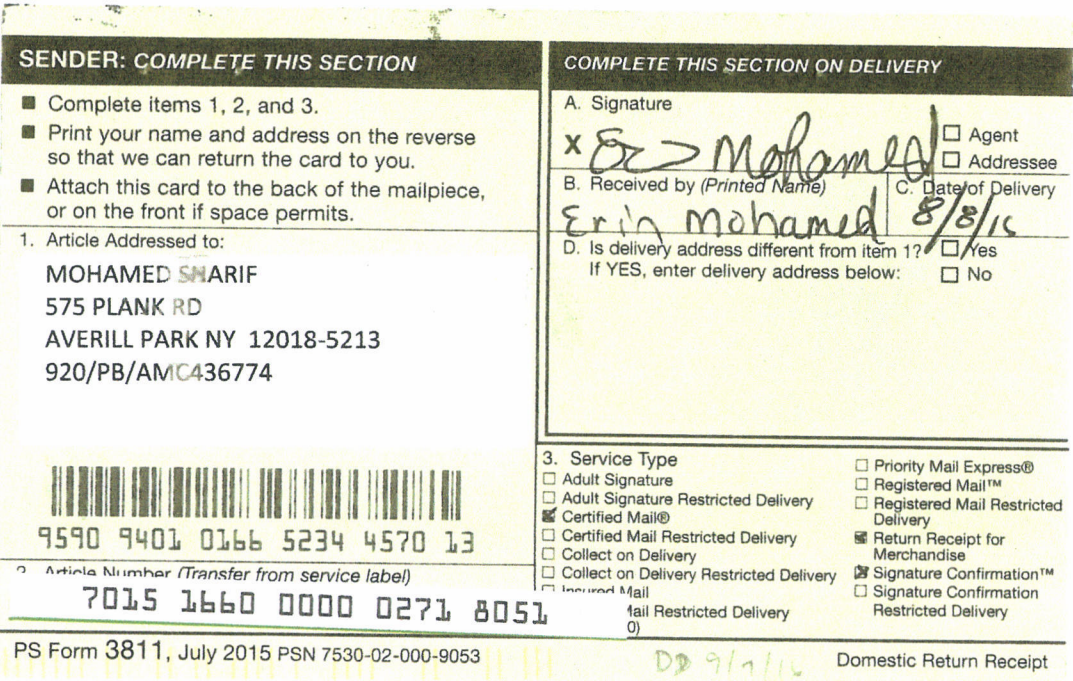 SENDER: COMPLETE THIS SECTION
■ Complete items 1, 2, and 3.
■ Print your name and address on the reverse
so that we can return the card to you.
■ Attach this card to the back of the mailpiece,
or on the front if space permits.
1. Article Addressed to:
MOHAMED SHARIF
575 PLANK RD
AVERILL PARK NY 12018-5213
920/PB/AMC436774
9590 9401 0166 5234 4570 13
2. Article Number (Transfer from service label)
7015 1660 0000 0271 8051
COMPLETE THIS SECTION ON DELIVERY
A. Signature
X Mohamed
☐ Agent
☐ Addressee
B. Received by (Printed Name)
C. Date of Delivery
Erin Mohamed 8/8/16
D. Is delivery address different from item 1? ☐ Yes
If YES, enter delivery address below: ☐ No
3. Service Type
☐ Adult Signature
☐ Adult Signature Restricted Delivery
☑ Certified Mail®
☐ Certified Mail Restricted Delivery
☐ Collect on Delivery
☐ Collect on Delivery Restricted Delivery
☐ Insured Mail
Mail Restricted Delivery
0)
☐ Priority Mail Express®
☐ Registered Mail™
☐ Registered Mail Restricted
Delivery
☑ Return Receipt for
Merchandise
☑ Signature Confirmation™
☐ Signature Confirmation
Restricted Delivery
PS Form 3811, July 2015 PSN 7530-02-000-9053
DD
Domestic Return Receipt